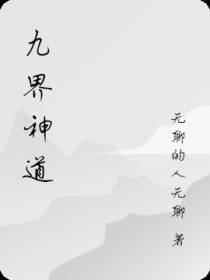 九界神道
无聊的人无聊 著